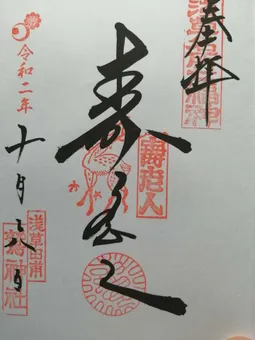 奉拝
浅草名所福神
寿老人
寿老人
令和二年
十月二八日
浅草田甫
鷲神社